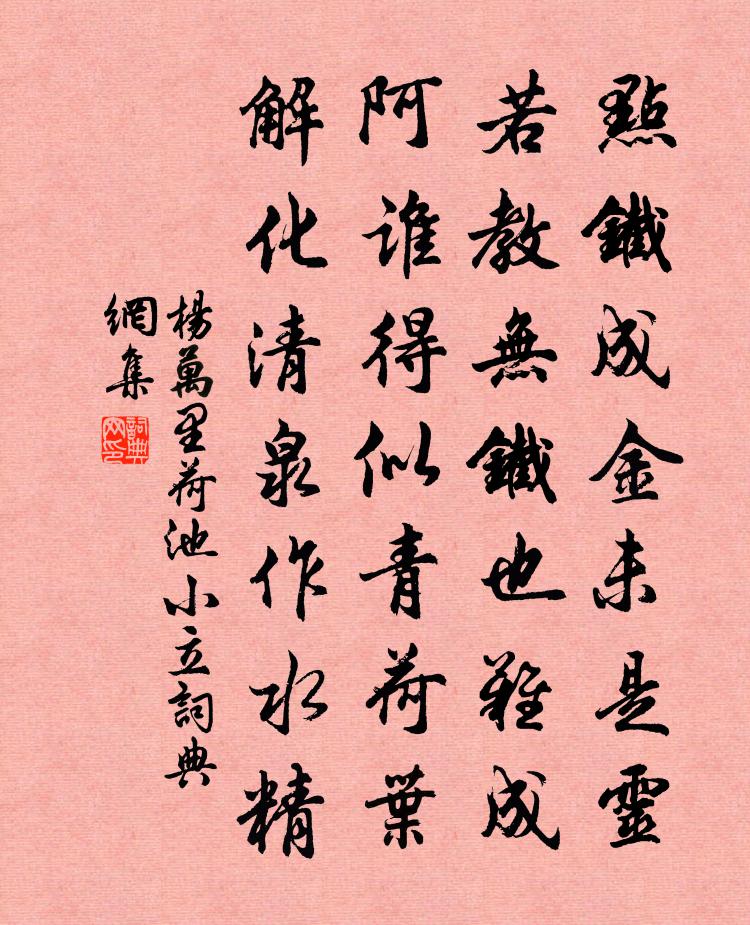 點鐵成金未是靈
若教無鐵也難成
阿誰得似青荷葉
解化清泉作水精
楊萬里荷池小立詞典
網集
詞典網印